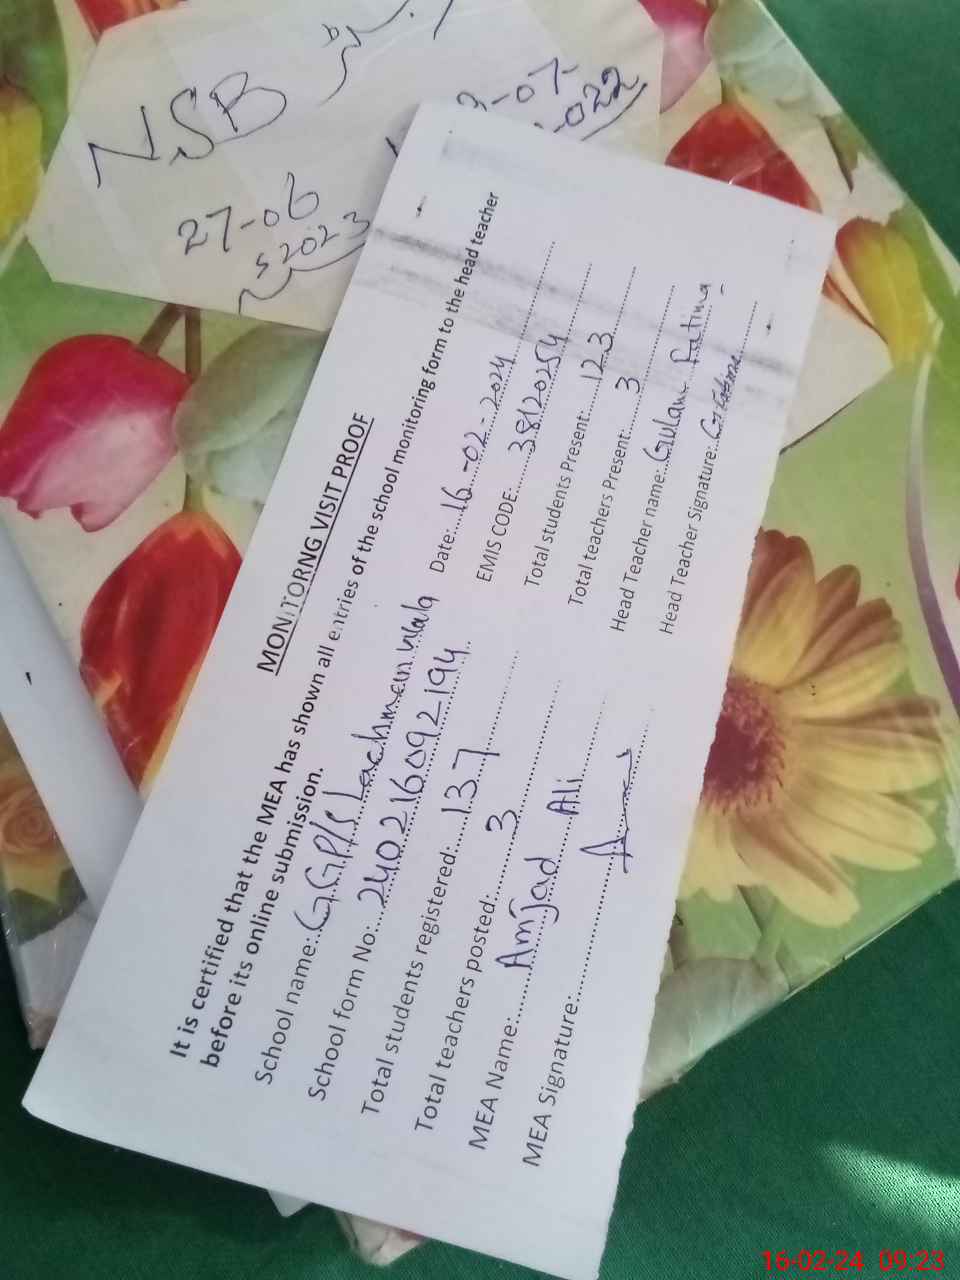 NSB
27-06
2023
-07-
2022
MONITORNG VISIT PROOF
It is certified that the MEA has shown all entries of the school monitoring form to the head teacher
before its online submission.
School name: G.GP/S Lachman wala Date: 16-02-2024
School form No: 240216092194 EMIS CODE: 38120254
Total students registered: 137 Total students Present: 123
Total teachers posted: 3 Total teachers Present: 3
MEA Name: Amjad Ali Head Teacher name: Gulam Fatima
MEA Signature: Head Teacher Signature: G. Fatima
16-02-24 09:23